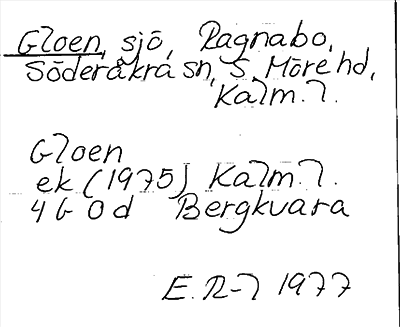 Gloen, sjö, Ragnabo,
Söderåkra sn, S. Möre hd,
Kalm. l.
Gloen
ek (1975) Kalm. l.
4G 0d Bergkvara
E. R-l 1977